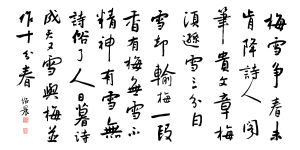 梅雪争春未
肯降诗人阁
笔费文章梅
须逊雪三分白
雪却输梅一段
香有梅无雪不
精神有雪无
诗俗了人日暮诗
成天又雪与梅並
作十分春